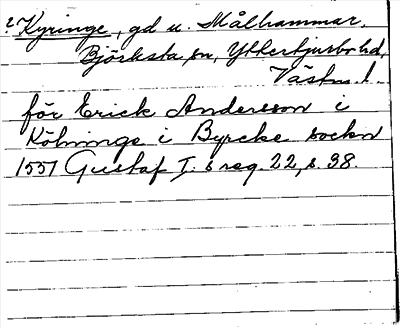 ? Kyringe, gd u. Målhammar,
Björksta sn, Yttertjurbo hd,
Västm. l.
för Erick Andersson i
Kölninge i Byrcke sockn
1557 Gustaf I:s reg. 22, s. 38.